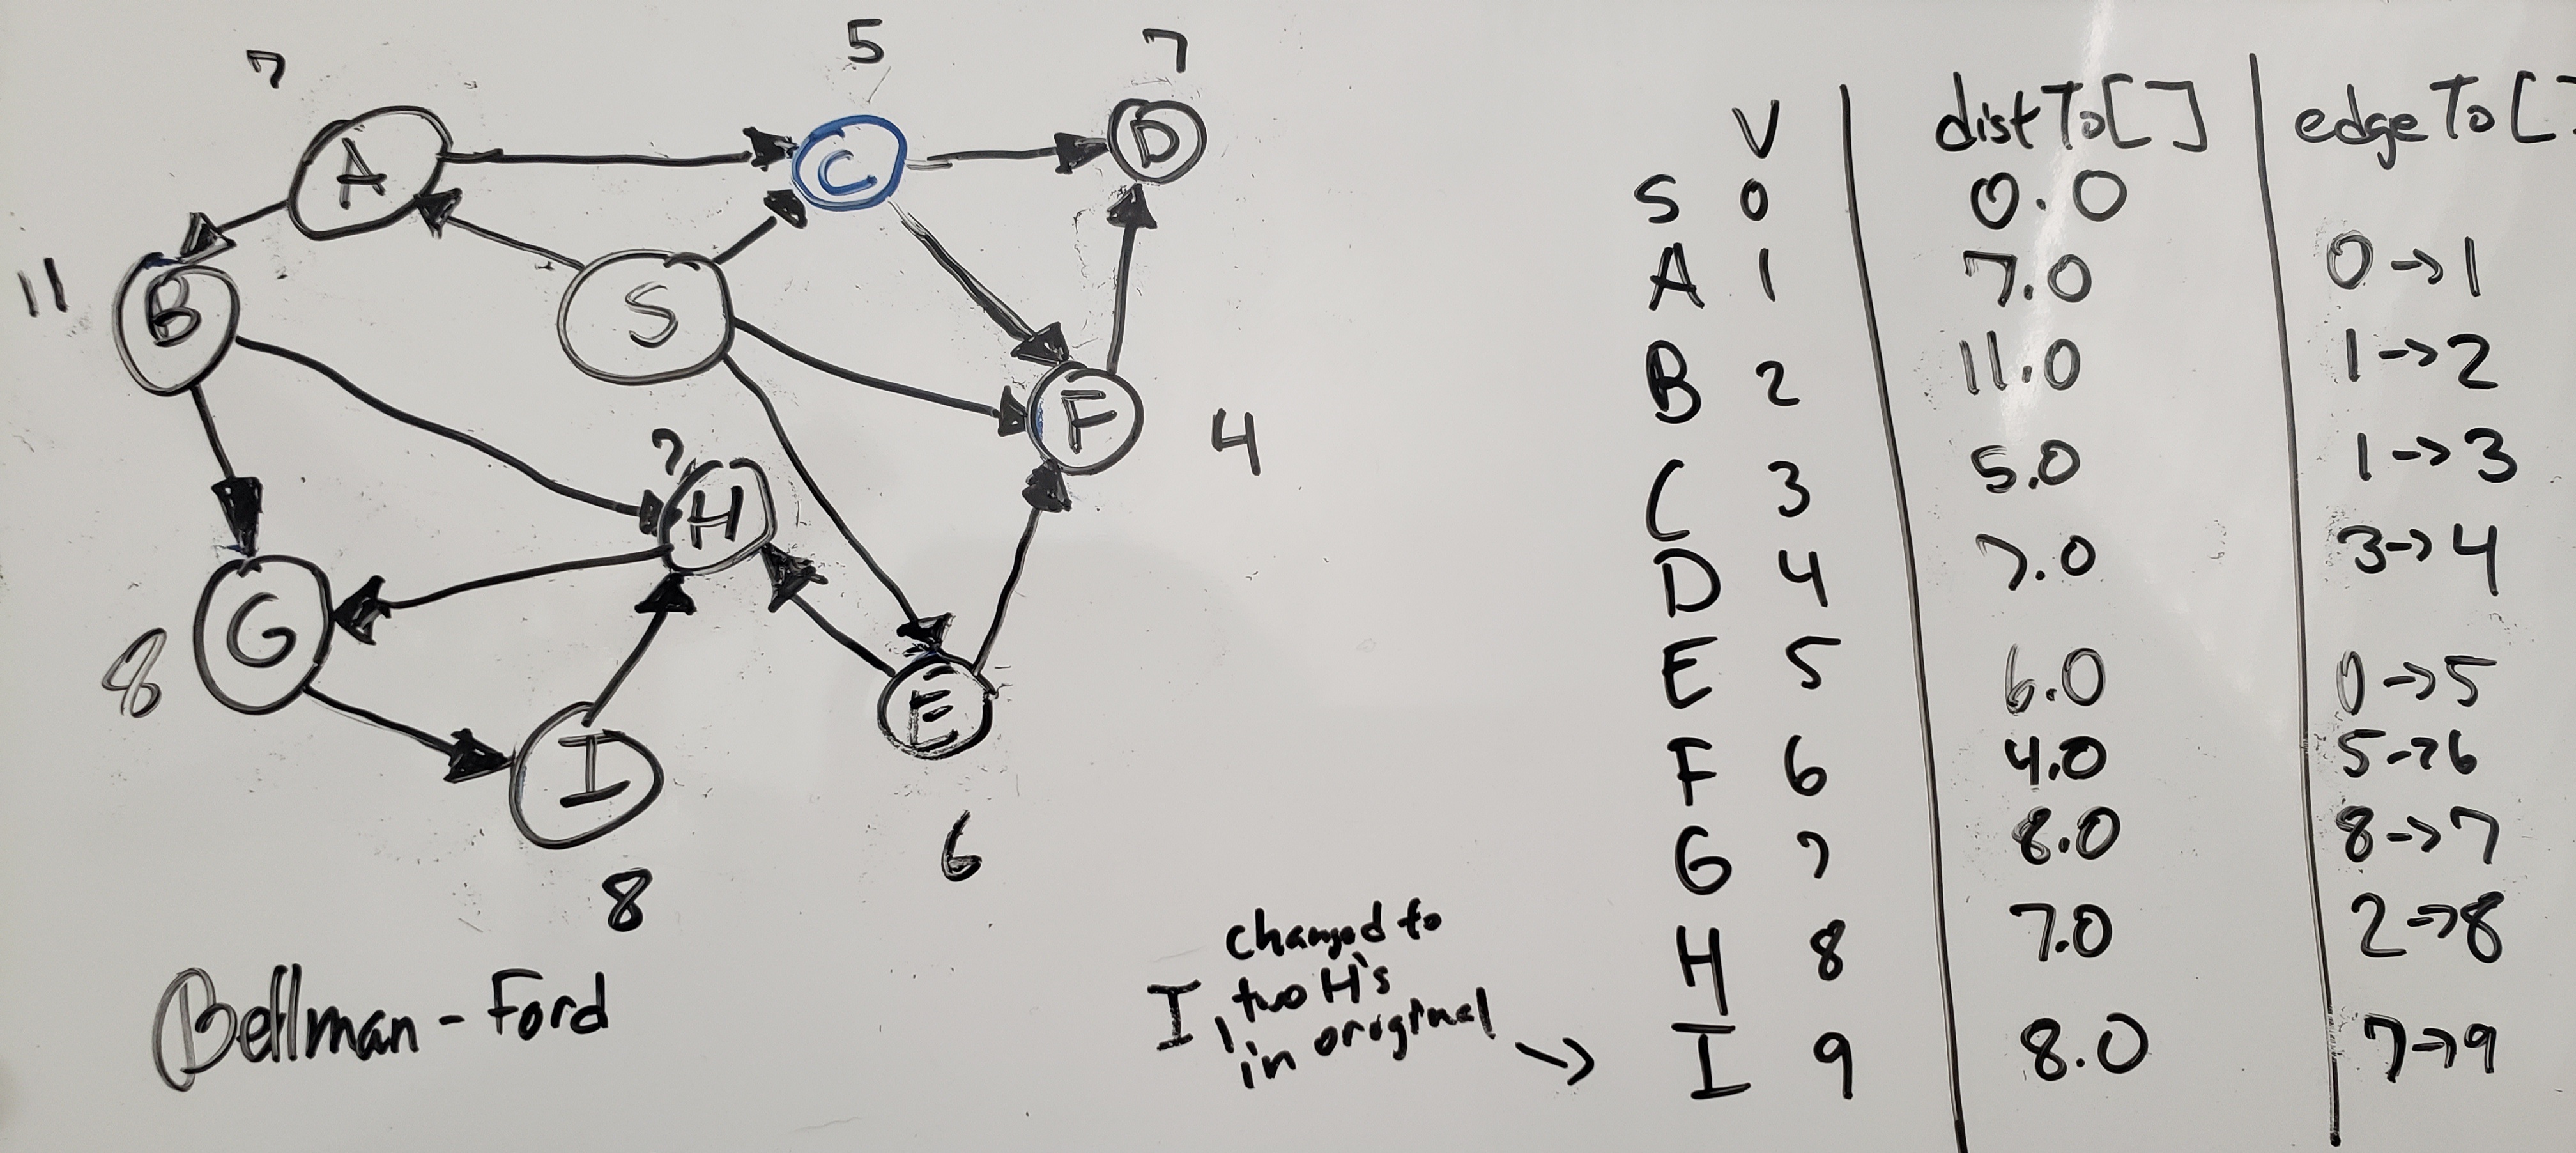 7
5
7
A
C
D
11
B
S
F
4
7
H
G
8
I
E
6
8
Bellman - Ford
changed to
I, two H's
in original
→
V distTo[] edgeTo[]
S 0 0.0
A 1 7.0 0->1
B 2 11.0 1->2
C 3 5.0 1->3
D 4 7.0 3->4
E 5 6.0 0->5
F 6 4.0 5->6
G 7 8.0 8->7
H 8 7.0 2->8
I 9 8.0 7->9